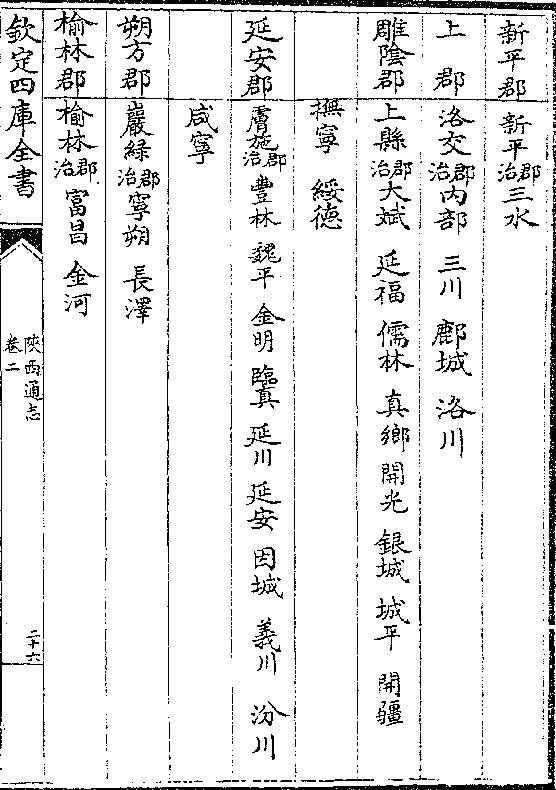 新平郡 新平郡治三水
上郡 洛交郡治內部 三川 鄜城 洛川
雕陰郡 上縣郡治大斌 延福 儒林 真鄉 開光 銀城 城平 開疆
撫寧 綏德
延安郡 膚施郡治豐林 魏平 金明 臨真 延川 延安 因城 義川 汾川
咸寧
朔方郡 巖綠郡治寧朔 長澤
榆林郡 榆林郡治富昌 金河
欽定四庫全書
陝西通志
卷二
二十六